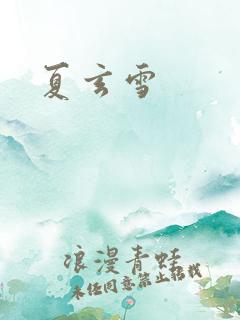 夏玄雪
浪漫青蛙
未经同意禁止转载